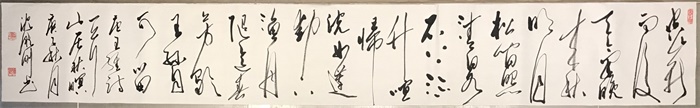 空山新
雨後
天氣晚
來秋
明月
松間照
清泉
石上流
竹喧
歸
浣女蓮
動下
漁舟
隨意春
芳歇
王孫自
可留
唐王維詩
一首
山居秋暝
秋月